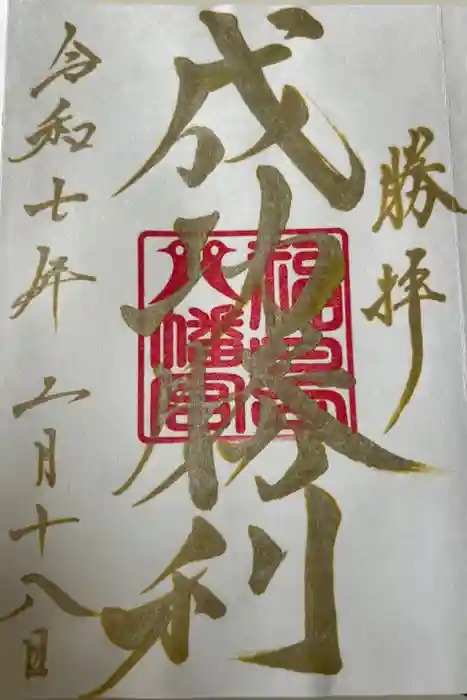 勝拝
成功勝利
福島
八幡宮
令和七年二月十八日